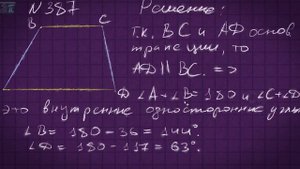 N 387
Решение:
B C
т.к. BC и AD основ
трапеции, то
AD || BC. =>
D ∠A + ∠B = 180 и ∠C + ∠D
это внутренние односторонние углы
∠B = 180 - 36 = 144°.
∠D = 180 - 117 = 63°.